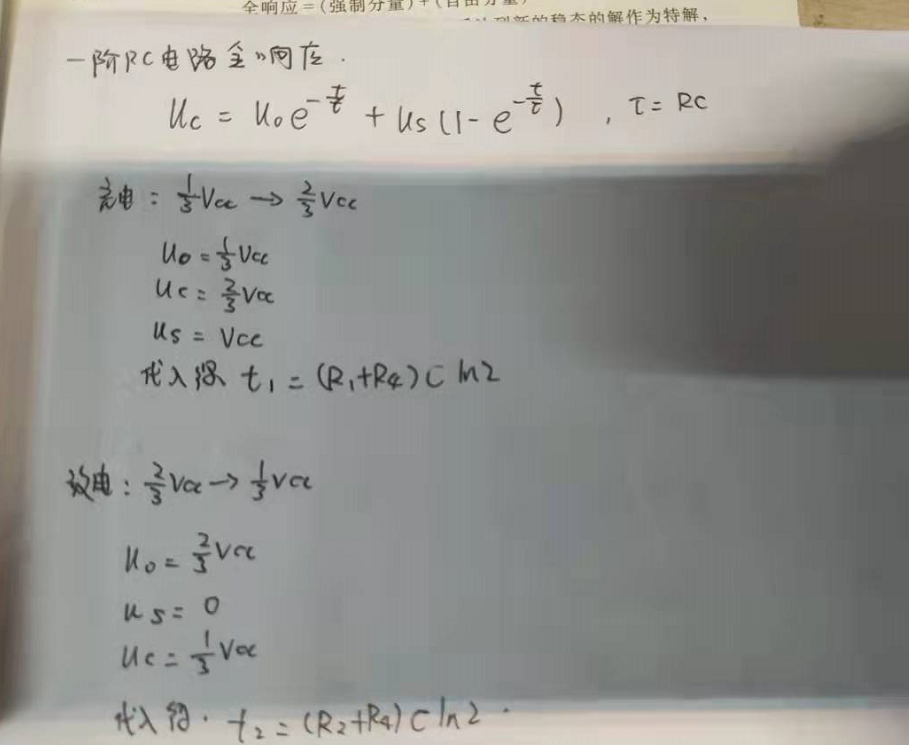 全响应=(强制分量)+(自由分量)
到新的稳态的解作为特解,
一阶RC电路全响应.
Uc = U₀e^{-t/τ} + Us(1-e^{-t/τ}), τ=RC
充电: 1/3Vcc → 2/3Vcc
U₀=1/3Vcc
Uc=2/3Vcc
Us=Vcc
代入得 t₁=(R₁+R₄)C ln2
放电: 2/3Vcc→1/3Vcc
U₀=2/3Vcc
Us=0
Uc=1/3Vcc
代入得. t₂=(R₂+R₄)C ln2.